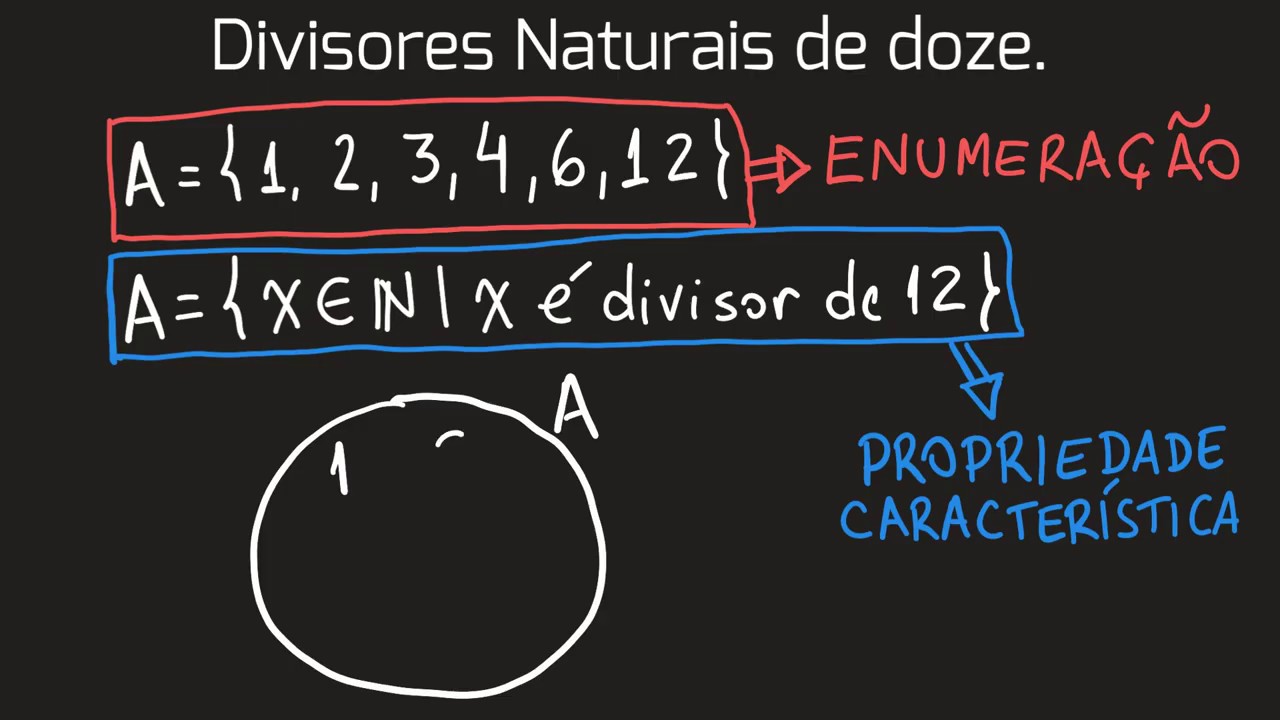 Divisores Naturais de doze.
A = {1, 2, 3, 4, 6, 12} ⇒ ENUMERAÇÃO
A = {X ∈ ℕ | X é divisor de 12}
A
1
PROPRIEDADE
CARACTERÍSTICA